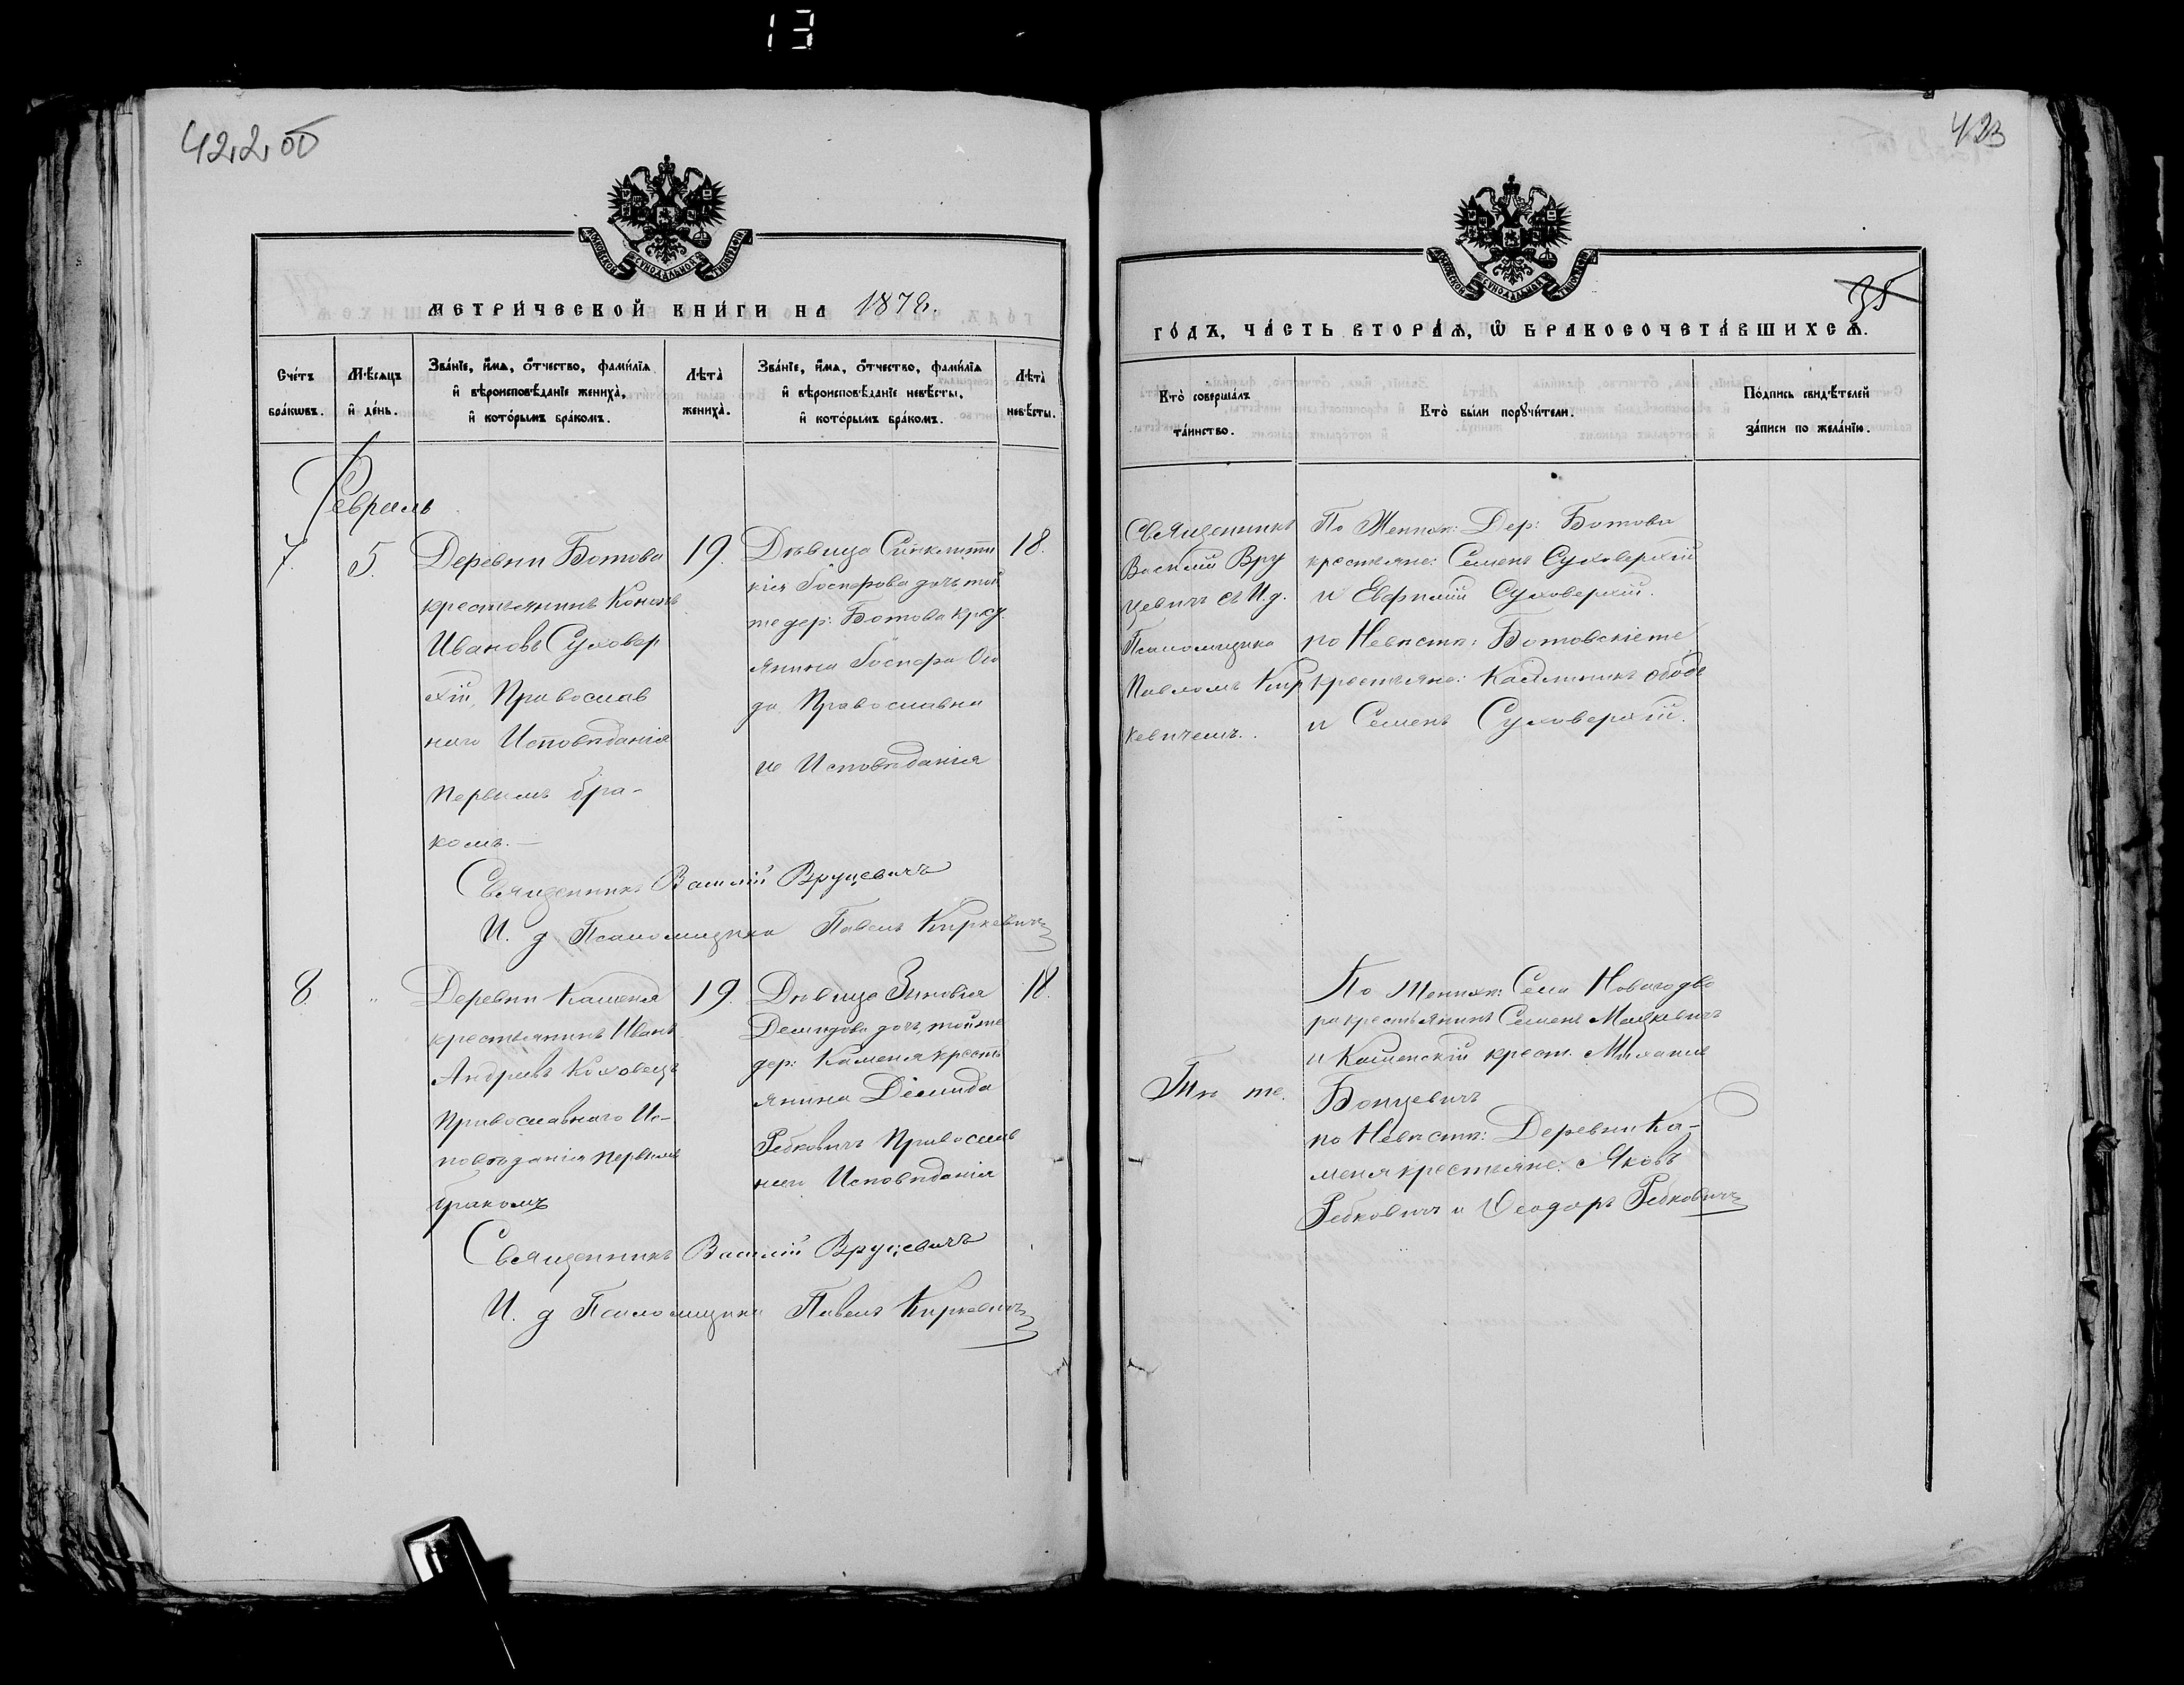 13
422 об
423
35
МОСКОВСКОЙ СѴНОДАЛЬНОЙ ТИПОГРАФІИ
МЕТРИ́ЧЕСКОЙ КНИ́ГИ НА 1878.
Сче́тъ бра́кωвъ.
Мѣ́сяцъ и҆ де́нь.
Зва́нїе, и҆́мѧ, ѻ҆́тчество, фамилїѧ
и҆ вѣроисповѣ́данїе жениха̀,
и҆ кото́рымъ бра́комъ.
Лѣта̀ жениха̀.
Зва́нїе, и҆́мѧ, ѻ҆́тчество, фамилїѧ
и҆ вѣроисповѣ́данїе невѣ́сты,
и҆ кото́рымъ бра́комъ.
Лѣта̀ невѣ́сты.
Февраль
7.
5.
Деревни Ботова
крестьянинъ
Ивановъ Суховер
хій, Православ
наго Исповѣданія
первымъ бра-
комъ.
19.
Дѣвица Синклити
кія Іосифова дочь, той
же дер: Ботова крес.
янина Іосифа
да Православна
го Исповѣданія
18.
Священникъ Василій Вруцевичъ
И. д Псаломщика Павелъ Киркевичъ
8.
"
Деревни Каменя
крестьянинъ Иванъ
Андреевъ Коховецъ
Православнаго Ис-
повѣданія первымъ
бракомъ
19.
Дѣвица Зиновія
Демидова дочь, той же
дер: Каменя кресть
янина Демида
Ребковичъ Православ
наго Исповѣданія
18.
Священникъ Василій Вруцевичъ
И. д Псаломщика Павелъ Киркевичъ
МОСКОВСКОЙ СѴНОДАЛЬНОЙ ТИПОГРАФІИ
ГО́ДЪ, ЧА́СТЬ ВТОРА́Ѧ, Ѽ БРАКОСОЧЕТА́ВШИХСѦ.
Кто̀ соверша́лъ та́инство.
Кто̀ бы́ли порꙋчи́тели.
По́дпись свидѣ́телей за́писи по жела́нїю.
Священникъ
Василій Вру
цевичъ съ И.д.
Псаломщика
Павломъ Кир
кевичемъ.
По Женихѣ: Дер: Ботова
крестьяне: Семенъ Суховерхій
и Евфимій Суховерхій.
по Невѣстѣ: Ботовскіе же
крестьяне:
и Семенъ Суховерхій.
Тѣ же.
По Женихѣ: Села Новагодво
ра крестьянинъ Семенъ Мацкевичъ
и Каменскій крест. Михаилъ
Бонцевичъ
по Невѣстѣ: Деревни Ка-
меня крестьяне: Яковъ
Ребковичъ и Ѳеодоръ Ребковичъ